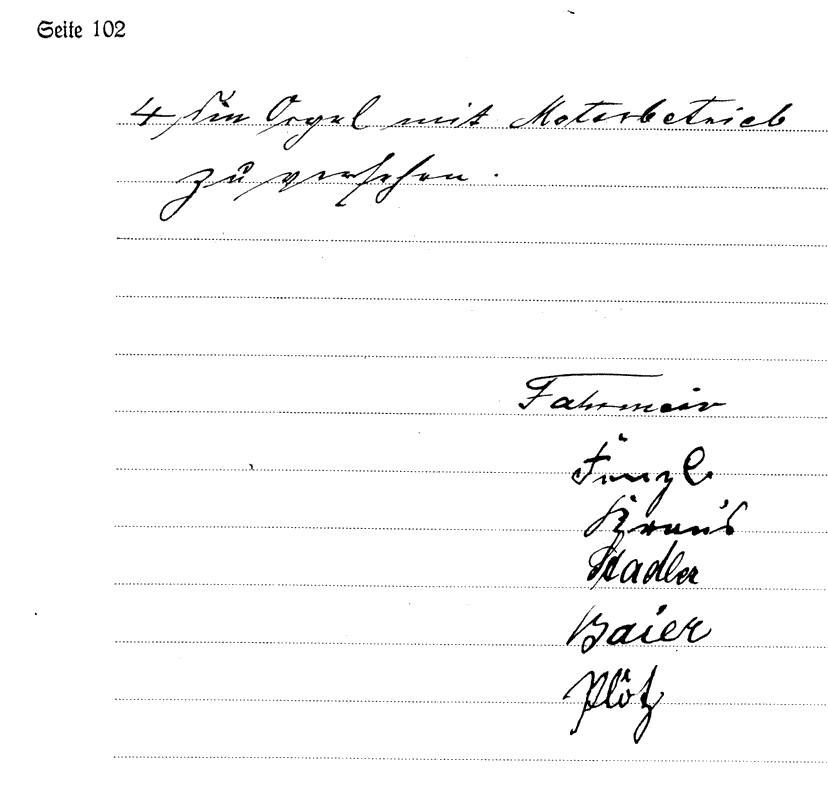 Seite 102
4 Die Orgel mit Motorbetrieb
zu versehen.
Fahrmeir
Kraus
Stadler
Baier
Plötz